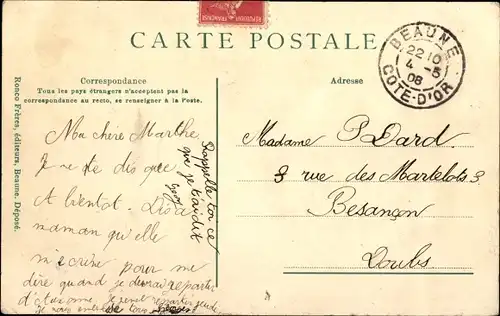 CARTE POSTALE
BEAUNE
22 10
4 - 5
08
COTE-D'OR
Correspondance
Tous les pays étrangers n'acceptent pas la
correspondance au recto, se renseigner à la Poste.
Adresse
Ronco Frères, éditeurs, Beaune. Déposé.
Ma chère Marthe
Je ne te dis que
A bientot. Dis à
maman qu'elle
m'écrive pour me
dire quand je devrai repartir
Rappelle toi ce
que je t'ai dit
Madame P Dard.
3 rue des Martelots 3
Besançon
Doubs